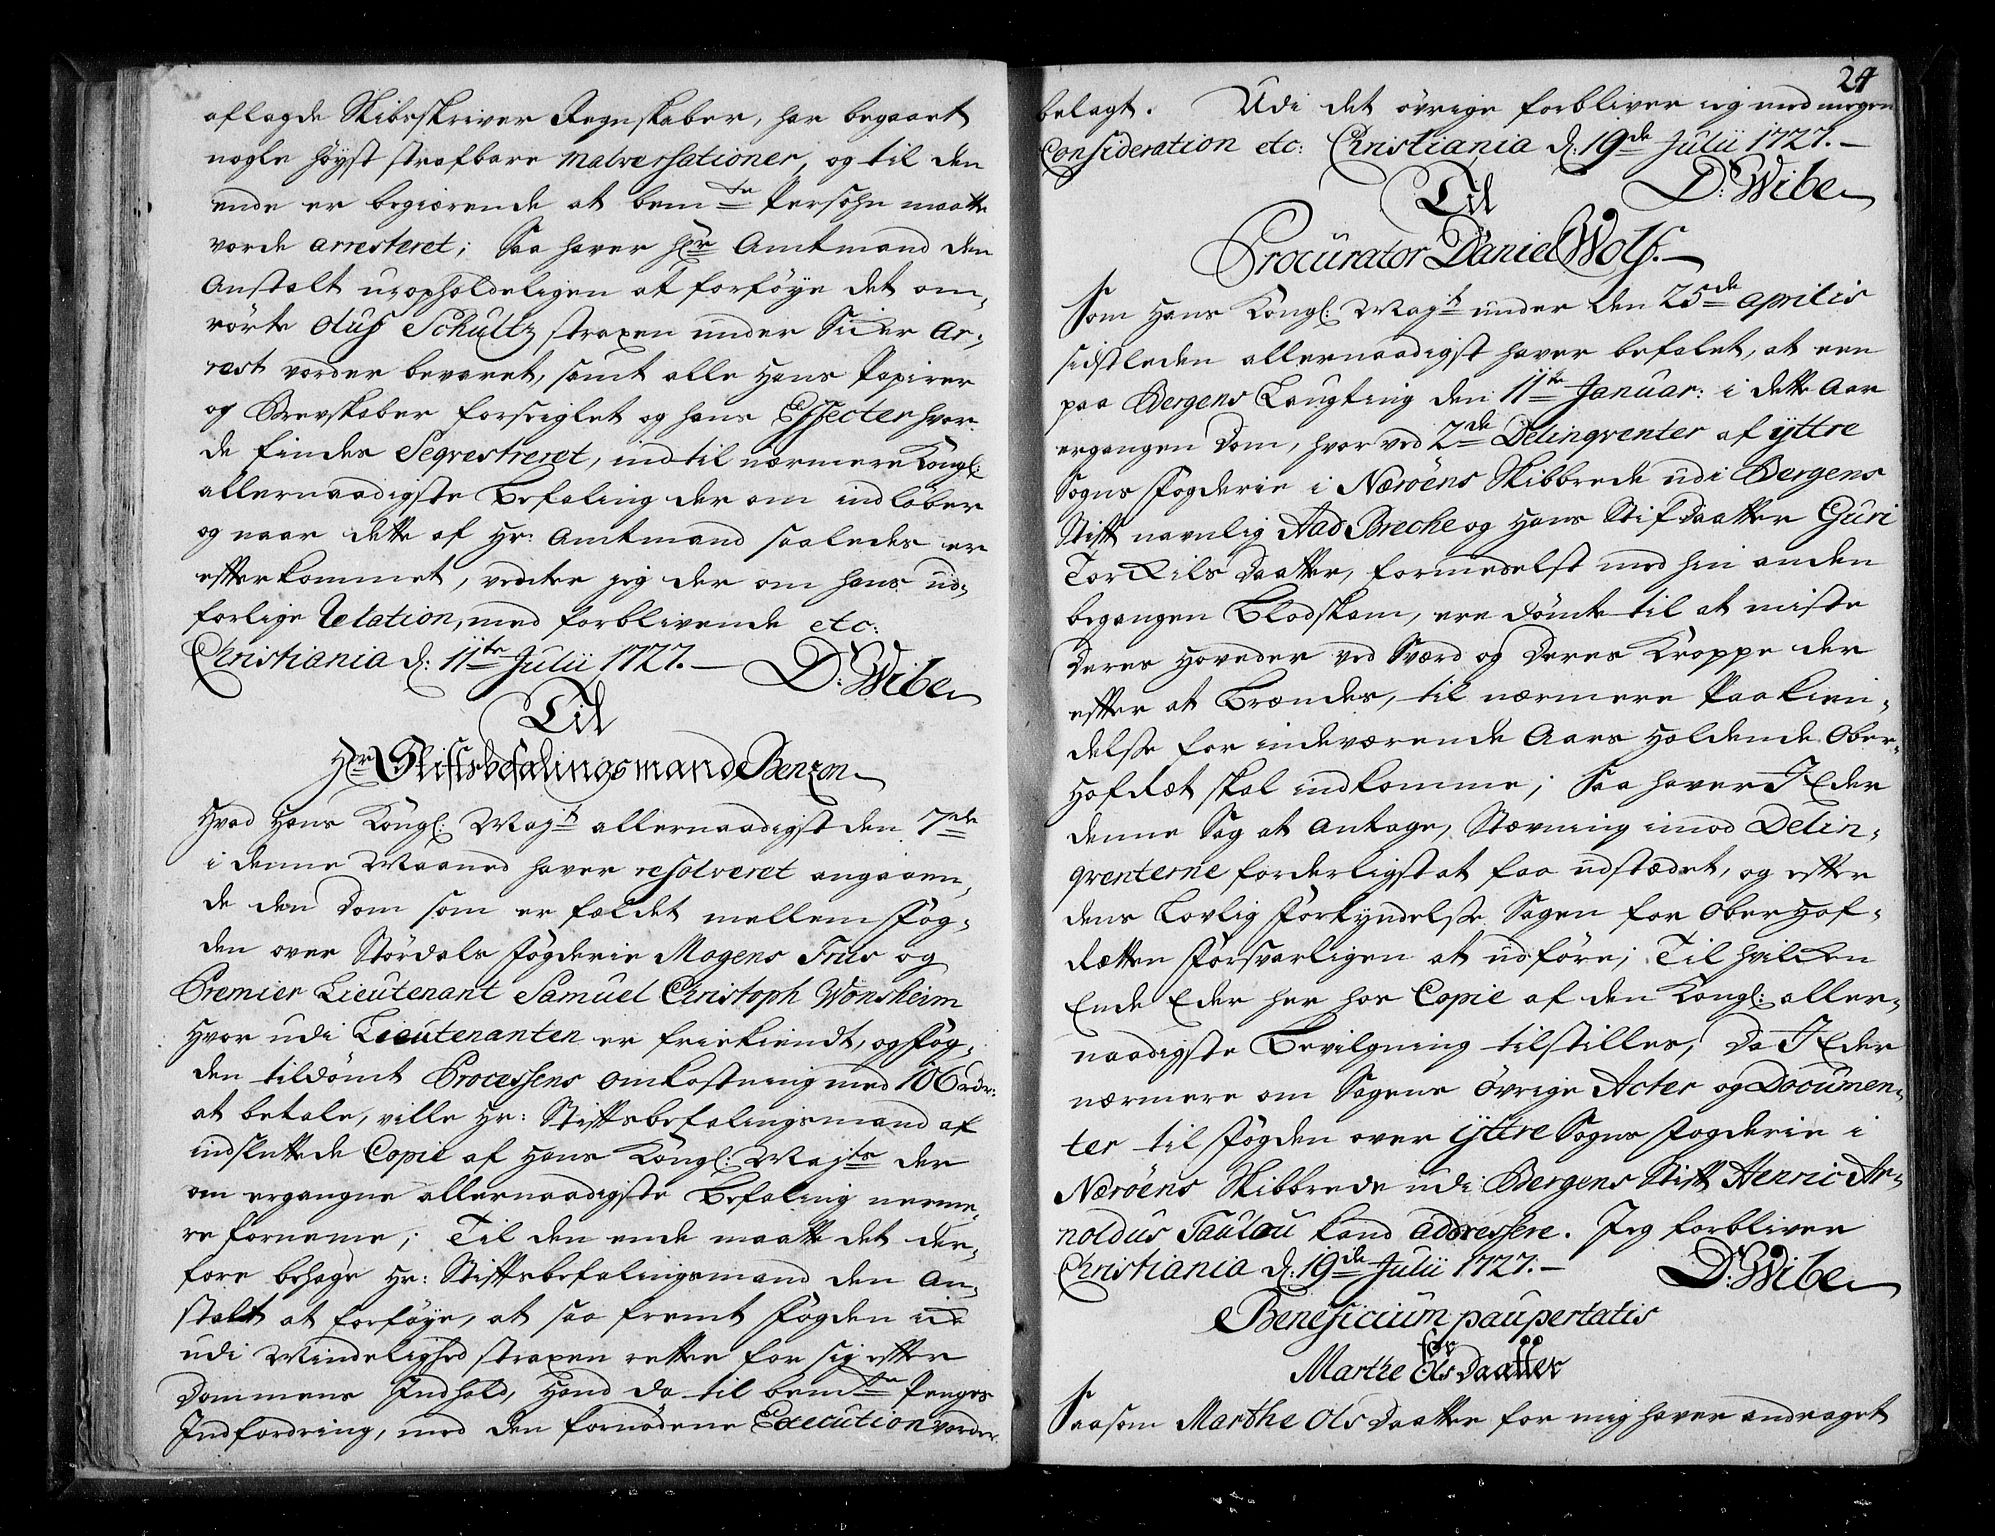 aflagde Skibsskriver Regnskaber, har begaaet
nogle høyst strafbare Malversationer, og til den
ende er begiærende at bem.te Persohn maatte
vorde arresteret; Saa haver Hr. Amtmand den
Anstalt uopholdeligen at forføye det om-
rörte Oluf Schultz straxen under Sicker Ar-
rest vorder bevaret, samt alle hans Papirer
og Brevskaber forseiglet og hans Effecter hvor
de findes Seqvestreret, indtil nærmere Kongl:
allernaadigste Befaling der om indløber
og naar dette af Hr: Amtmand saaledes er
efterkommet, venter jeg der om hans ud-
førlige Relation, med forblivende etc:
Christiania d: 11te Julii 1727. — D: Wibe
Til
Hr Stiftsbefalingsmand Benzon
Hvad Hans Kongl: Maj.t allernaadigst den 7de
i denne Maaned haver resolveret angaaen-
de den Dom som er fældet mellem Fog-
den over Stördals Fogderie Mogens Friis og
Premier Lieutenant Samuel Christoph Wonsheim
Hvor udi Lieutenanten er friekiendt, og Fog-
den tildömt Processens Omkostning med 106 rdr:
at betale, ville Hr: Stiftsbefalingsmand af
indsluttede Copie af Hans Kongl: Maj.ts der
om ergangne allernaadigste Befaling nerme-
re fornemme; Til den ende maatte det der-
fore behage Hr: Stiftsbefalingsmand den An-
stalt at forföye, at saa fremt Fogden ie
udi Mindelighed straxen retter for sig efter
Dommens Indhold, Hand da til bem.te Penges
Indfordring, med den fornödene Execution vorder
24
belagt. Udi det övrige forbliver ieg med megen
Consideration etc: Christiania d: 19de Julii 1727. —
D: Wibe
Til
Procurator Daniel Wolf. —
Som Hans Kongl: Maj.t under den 25de Aprilis
sidstleden allernaadigst haver befalet, at een
paa Bergens Laugting den 11te Januar: i dette Aar
ergangen Dom, hvor ved 2de Delinqventer af ÿttre
Sogns Fogderie i Nærøens Skibbrede udi Bergens
Stift navnlig Aad Breche og Hans Stif Daatter Guri
Torkils Daatter, formedelst med hin anden
begangen Blodskam, ere dömte til at miste
deres Hoveder ved Sværd og deres Kroppe der
efter at Brændes, til nærmere Paakien-
delse for indeværende Aars Holdende Ober-
Hofræt skal indkomme; Saa haver I Eder
denne Sag at antage, Stævning imod Delin-
qventerne forderligst at faa udstædet, og efter
dens Lovlig Forkyndelse Sagen for Ober Hof-
Rætten forsvarligen at udföre; Til hvilken
Ende Eder her hos Copie af den Kongl: aller-
naadigste Bevilgning tilstilles, da I Eder
nærmere om Sagens övrige Acter og Documen-
ter til Fogden over ÿttre Sogns Fogderie i
Næröens Skibbrede udi Bergens Stift Henric Ar-
noldus Taulou kand addressere. Jeg forbliver
Christiania d: 19de Julii 1727. — D: Wibe
Beneficium paupertatis
for
Marthe Ols Daatter
Saasom Marthe Ols Daatter for mig haver andraget